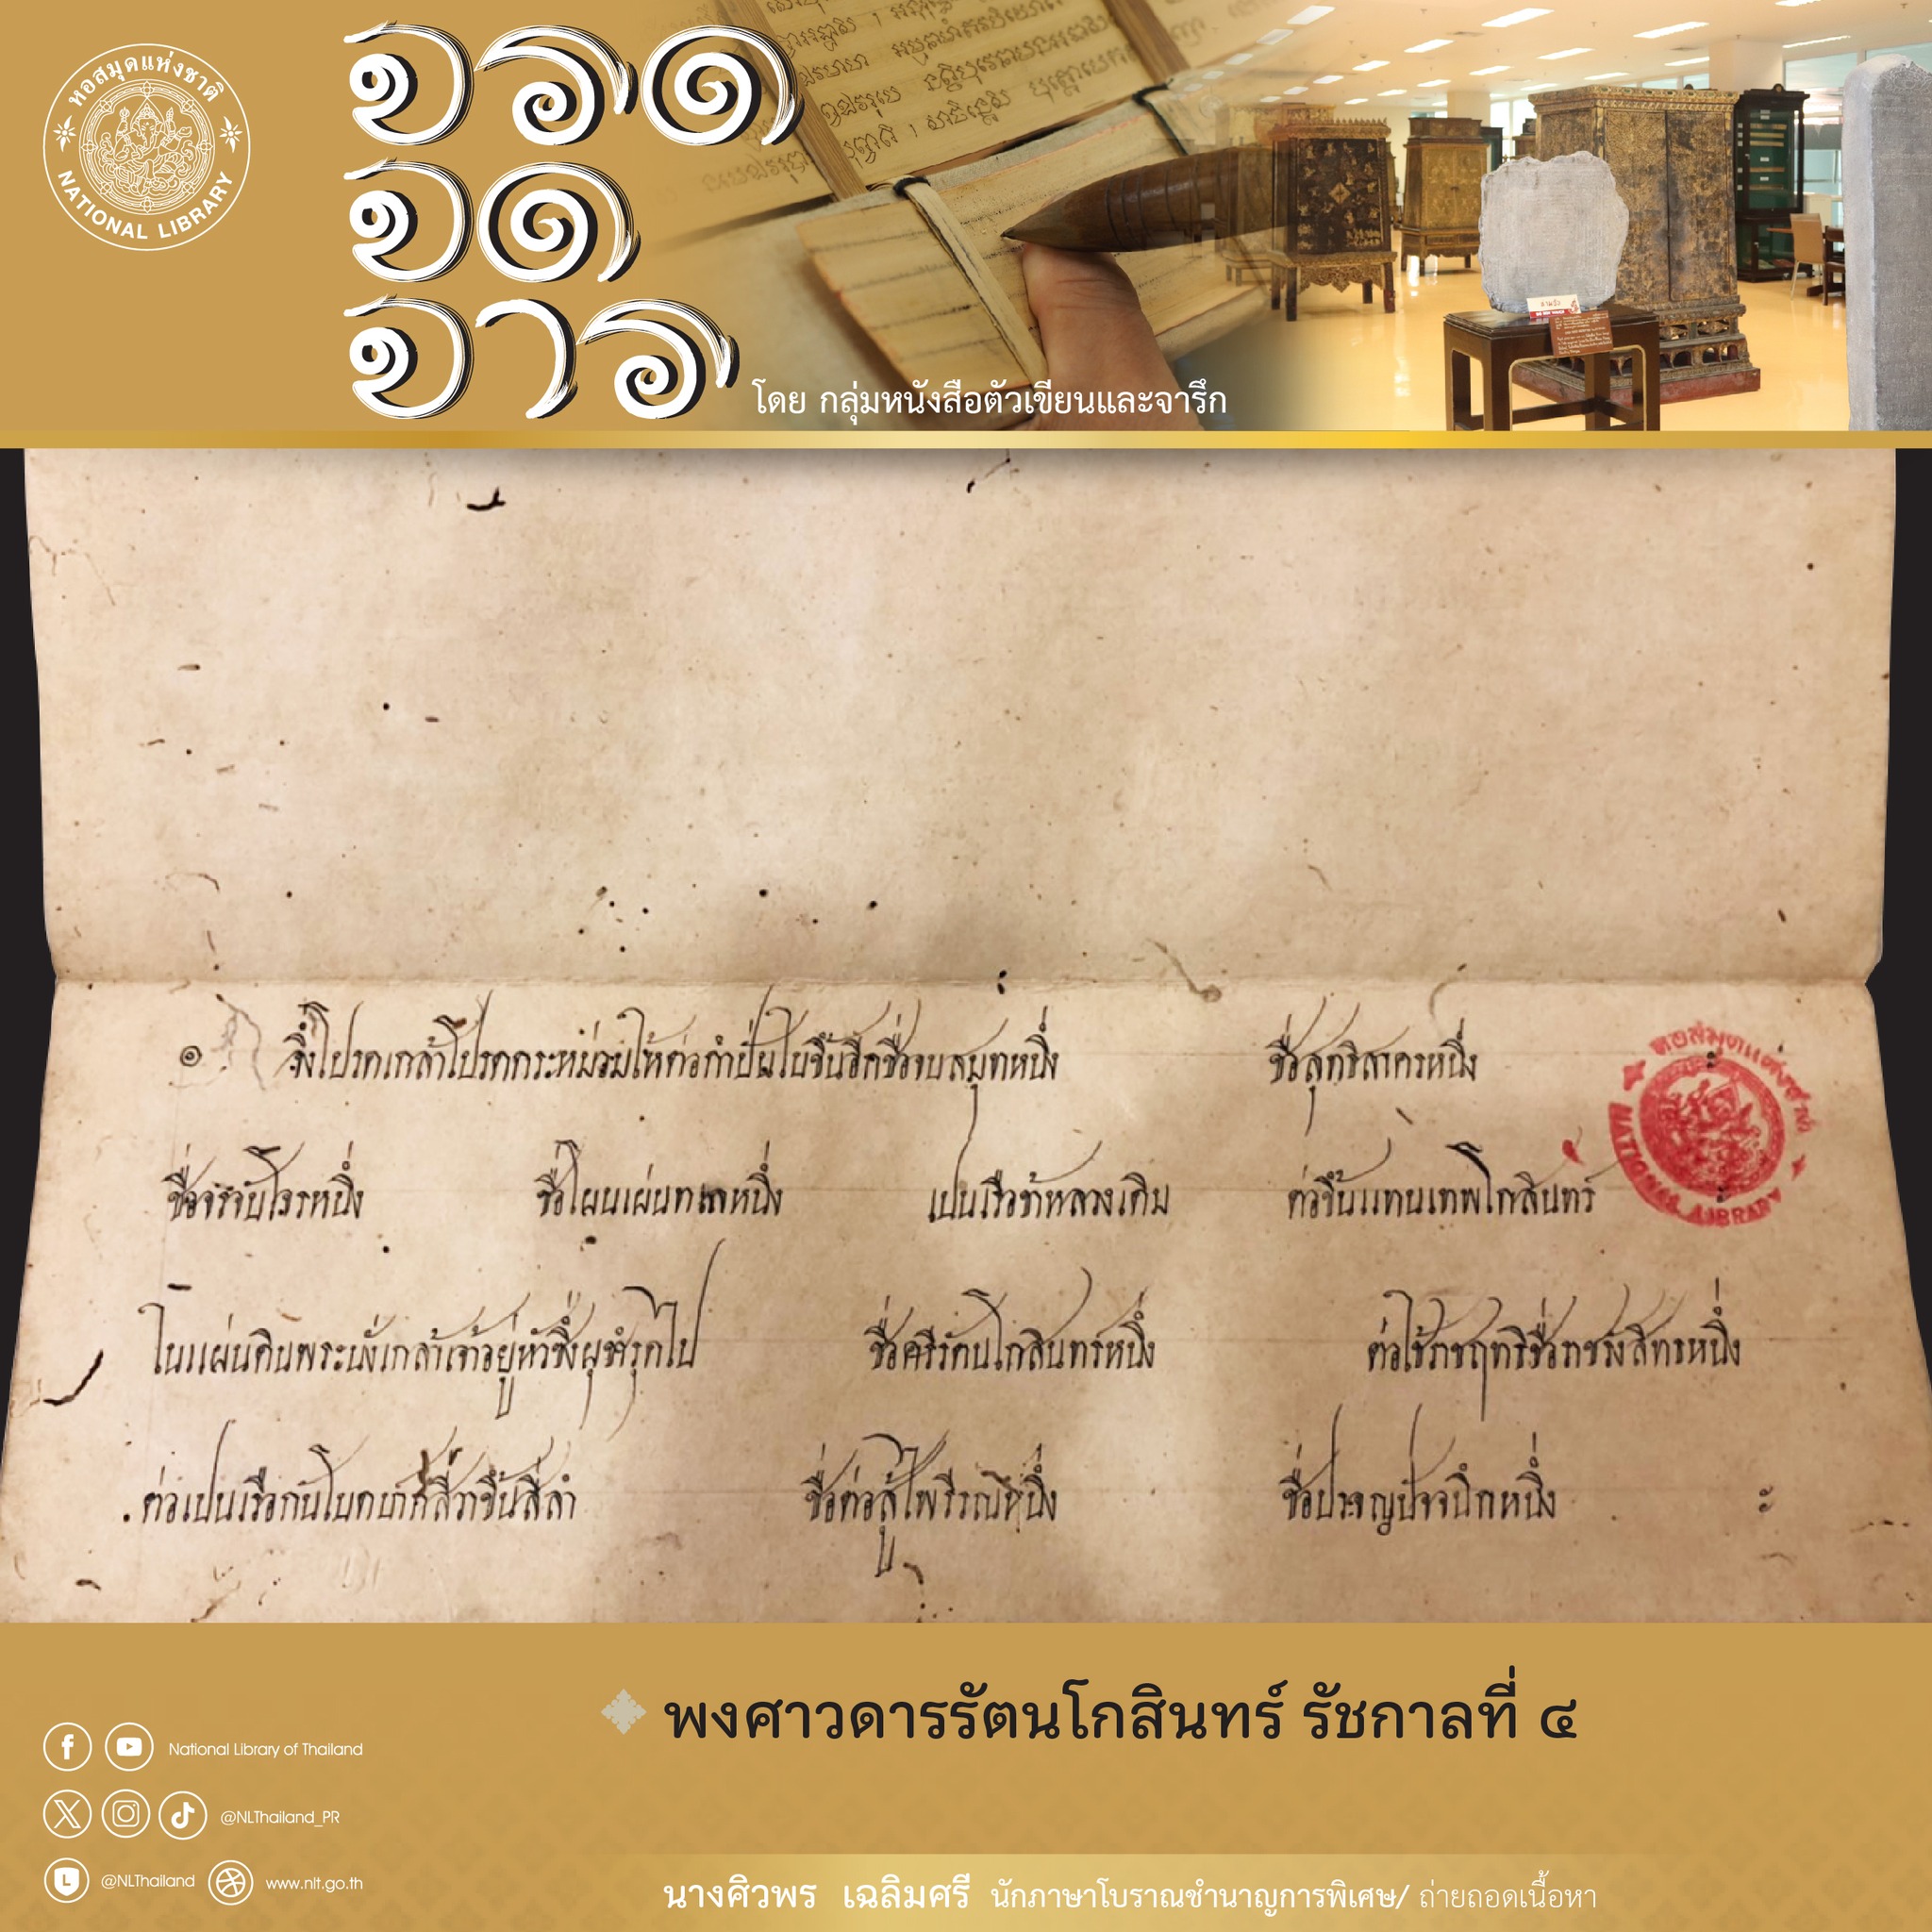 หอสมุดแห่งชาติ
NATIONAL LIBRARY
จรด
จด
จาร
โดย กลุ่มหนังสือตัวเขียนและจารึก
๏ จึ่งโปรดเกล้าโปรดกระหม่อมให้ต่อกำปั่นใบขึ้นอีกชื่อจบสมุทหนึ่ง ชื่อสุทธิสาครหนึ่ง
หอสมุดแห่งชาติ
NATIONAL LIBRARY
ชื่อจรจับโจรหนึ่ง ชื่อโผนเผ่นทเลหนึ่ง เปนเรือข้าหลวงเดิม ต่อขึ้นแทนเทพโกสินทร์
ในแผ่นดินพระนั่งเกล้าเจ้าอยู่หัวซึ่งผุชำรุดไป ชื่อศรีรัตนโกสินทร์หนึ่ง ต่อใช้ราชฤทธิชื่อราชรังสิทรหนึ่ง
ต่อเปนเรือกันโบด สี่วาขึ้นสี่ลำ ชื่อต่อสู้ไพรีรณหนึ่ง ชื่อประจญปัจจนึกหนึ่ง ะ
พงศาวดารรัตนโกสินทร์ รัชกาลที่ ๔
National Library of Thailand
@NLThailand_PR
@NLThailand www.nlt.go.th
นางศิวพร เฉลิมศรี นักภาษาโบราณชำนาญการพิเศษ/ ถ่ายถอดเนื้อหา